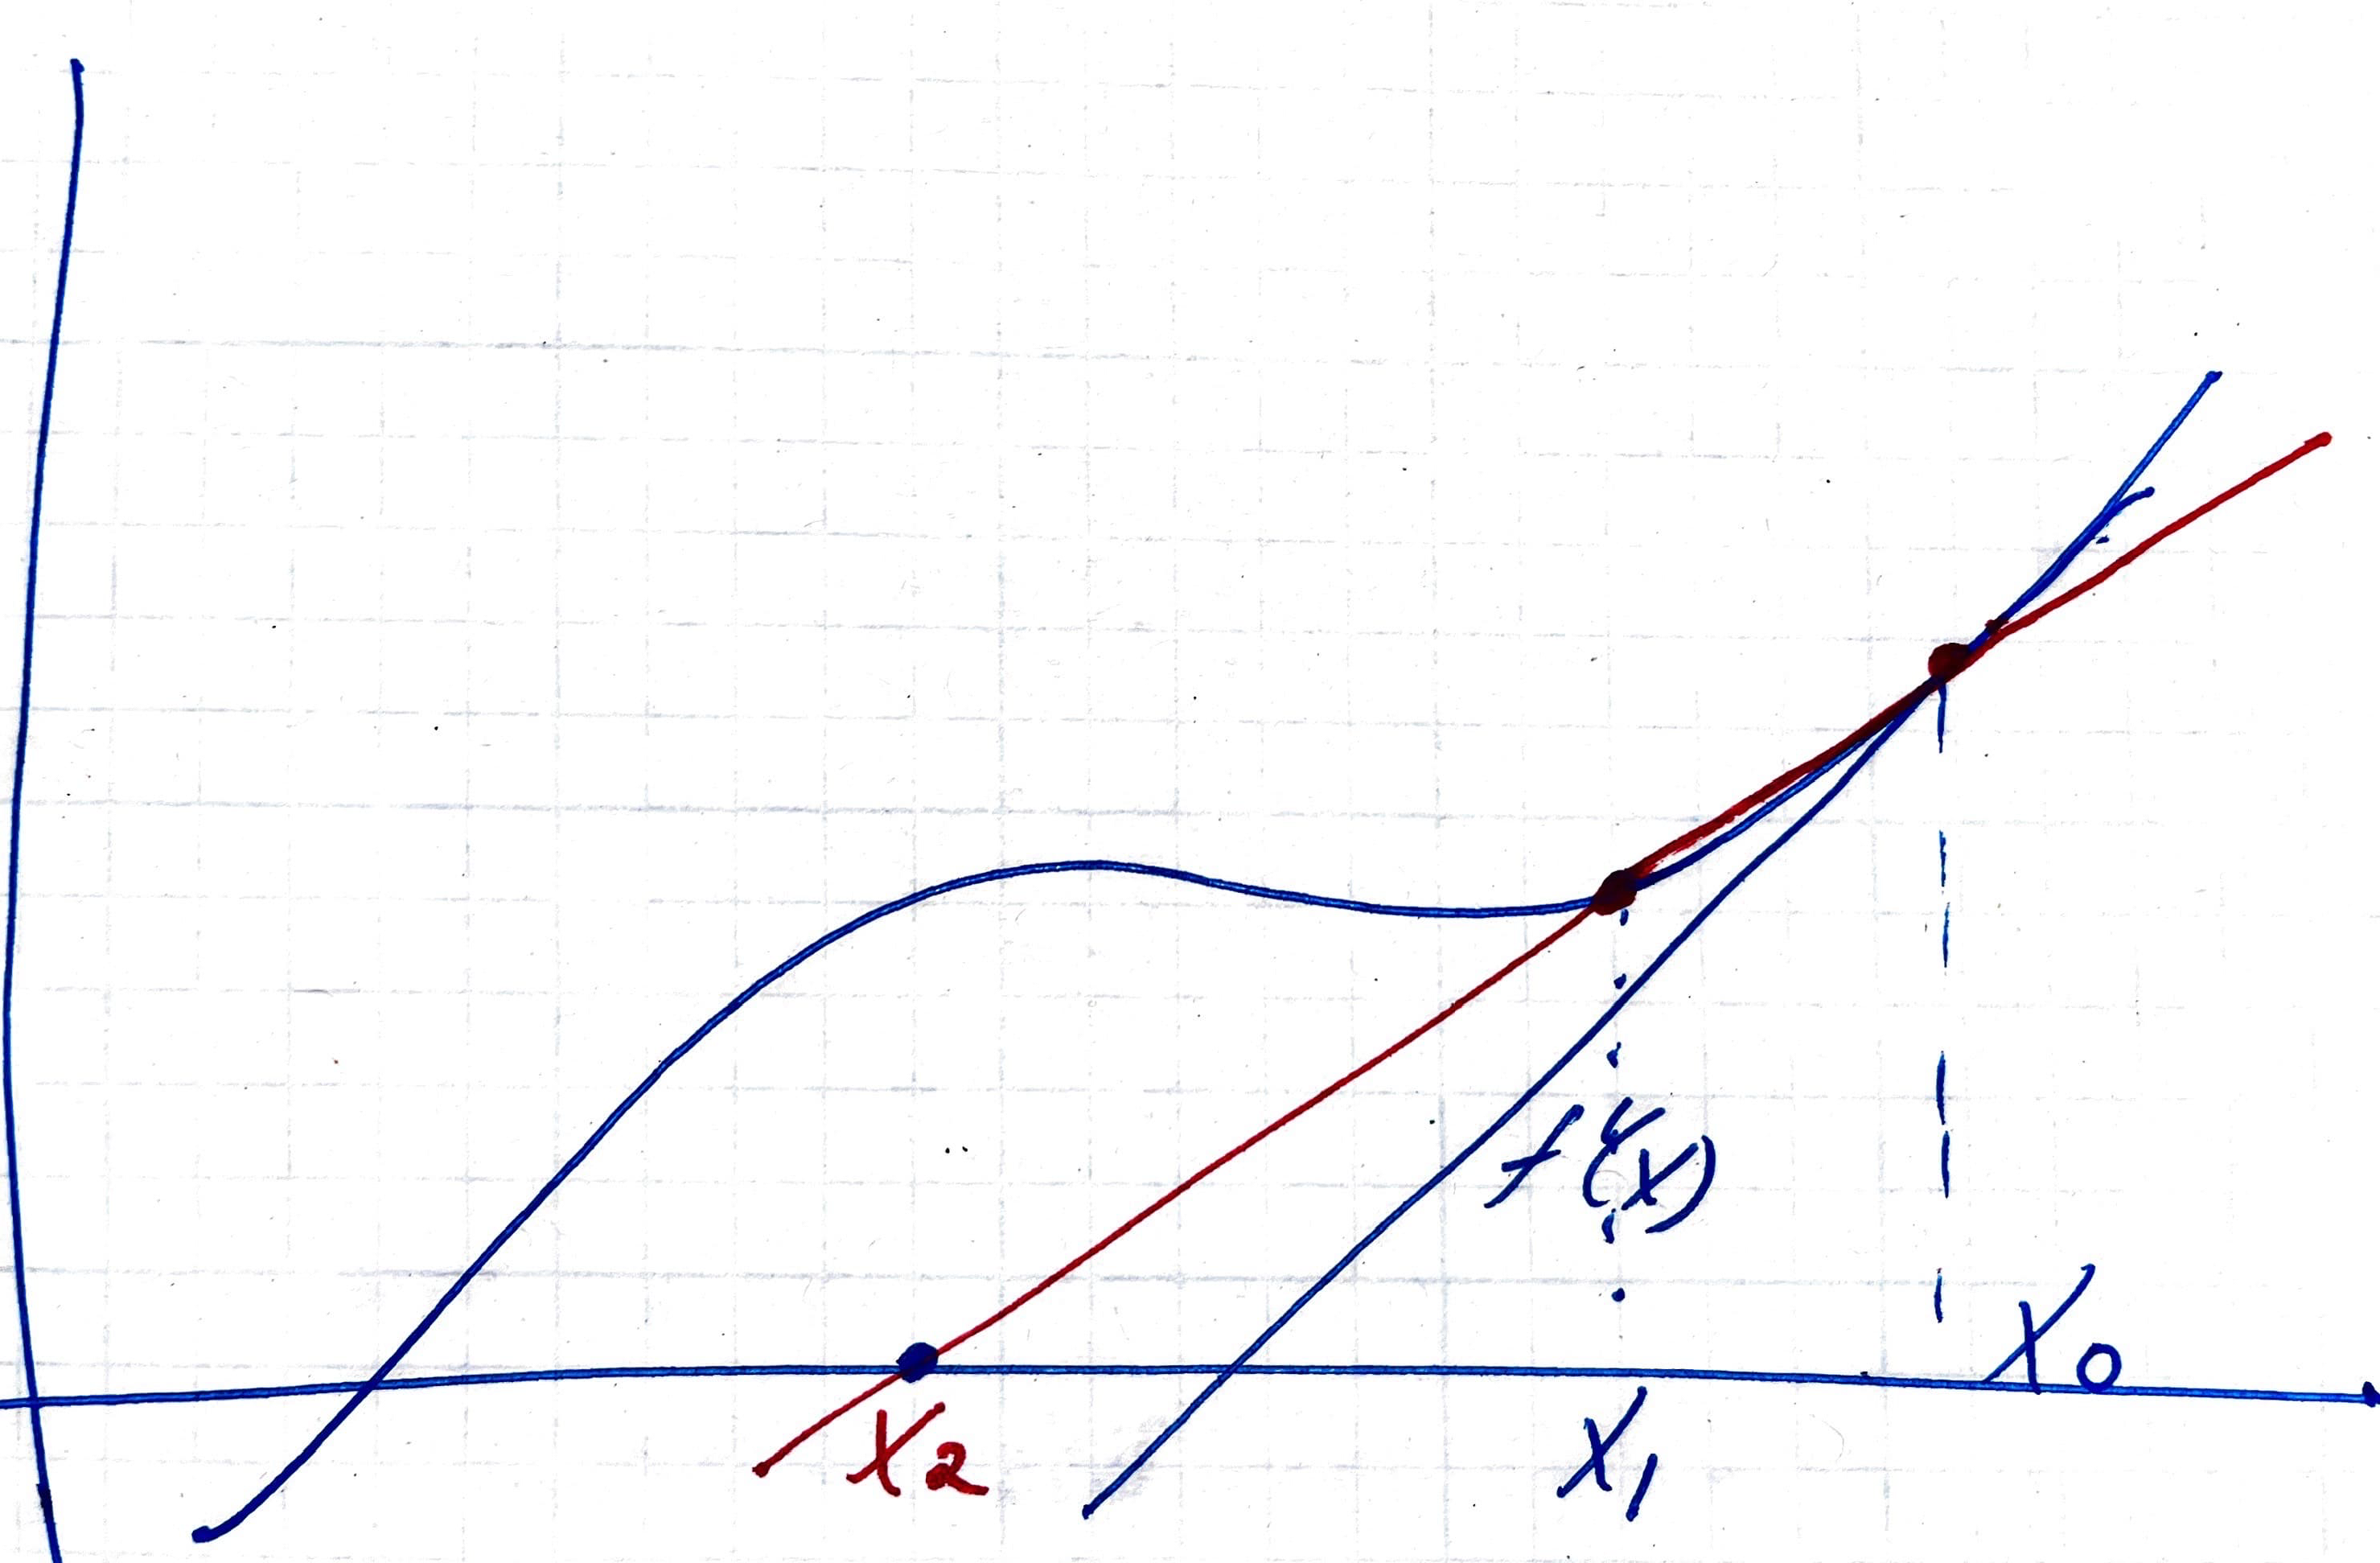 f'(x)
x₀
x₂
x₁